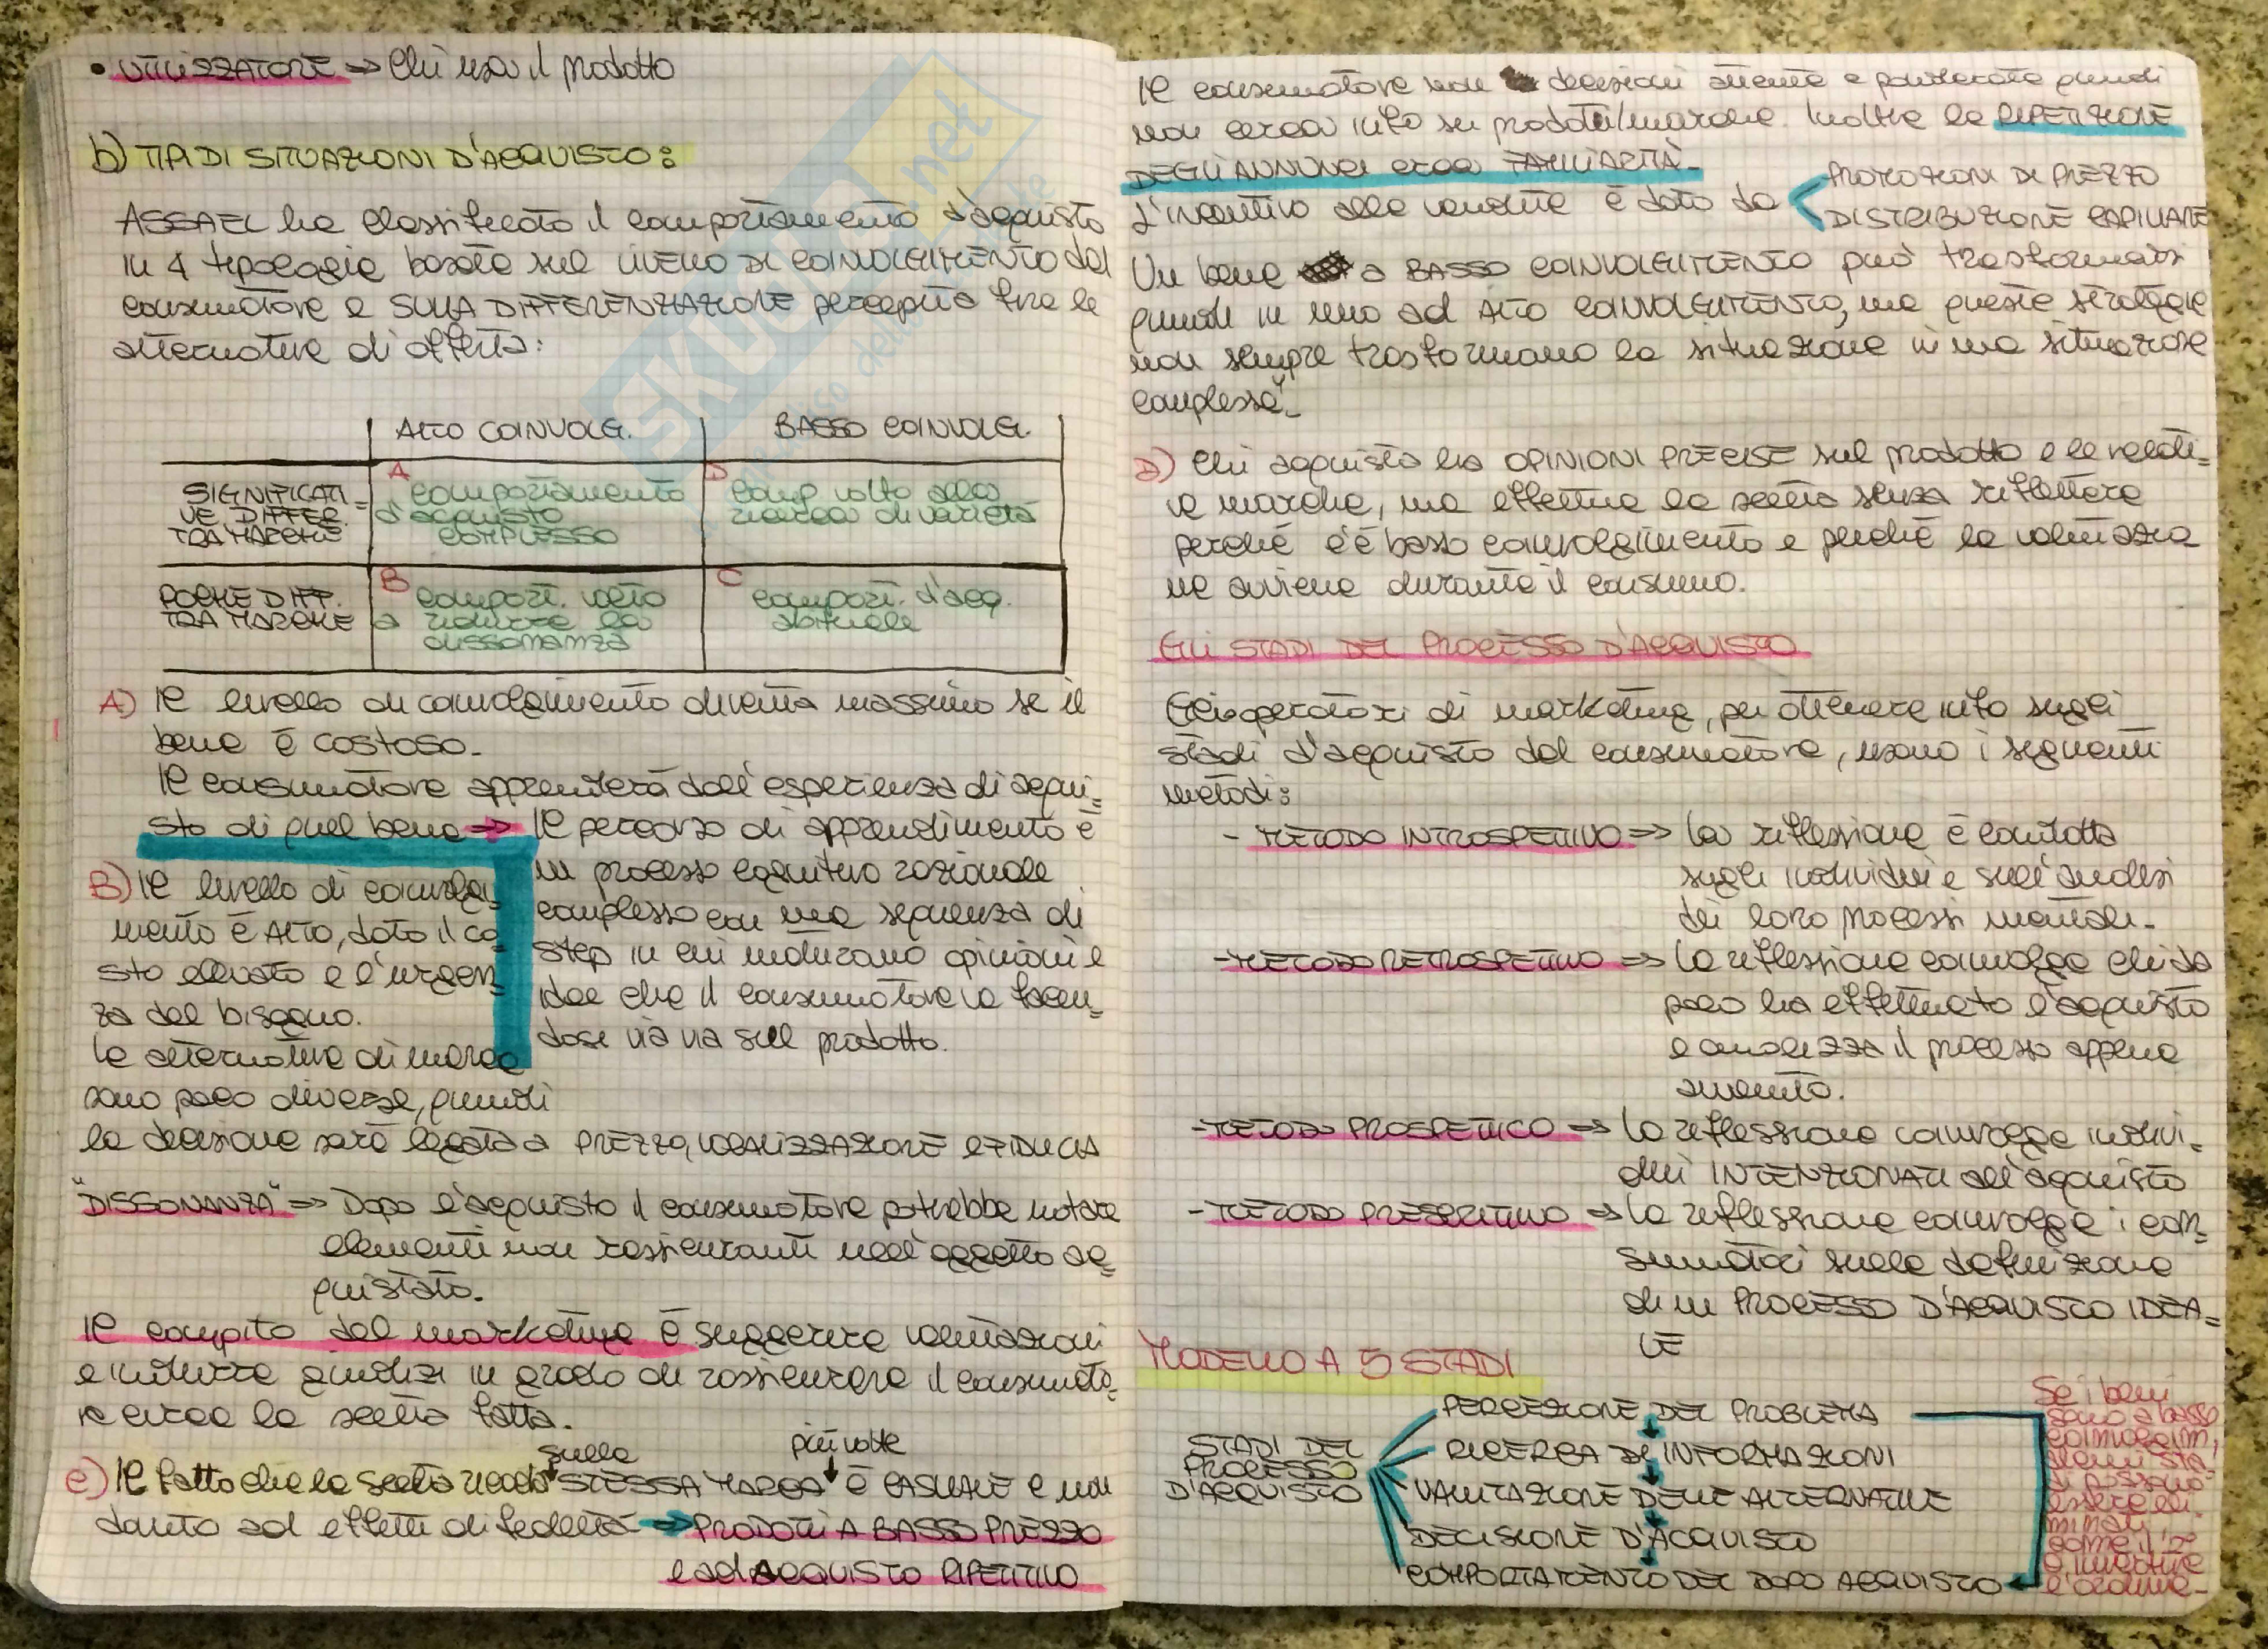 • UTILIZZATORE => Chi usa il prodotto
b) TIPI DI SITUAZIONI D'ACQUISTO:
ASSAEL ha classificato il comportamento d'acquisto
in 4 tipologie basate sul LIVELLO DI COINVOLGIMENTO del
consumatore e SULLA DIFFERENZIAZIONE percepita tra le
alternative di offerta:
ALTO COINVOLG. BASSO COINVOLG.
SIGNIFICATI=
VE DIFFER.
TRA MARCHE
A
comportamento
d'acquisto
COMPLESSO
D
comp volto alla
ricerca di varietà
POCHE DIFF.
TRA MARCHE
B
comport. volto
a ridurre la
dissonanza
C
comport. d'acq.
abituale
A) Il livello di coinvolgimento diventa massimo se il
bene è costoso.
Il consumatore apprenderà dall'esperienza di acqui=
sto di quel bene => Il percorso di apprendimento è
un processo cognitivo razionale
complesso con una sequenza di
step in cui maturano opinioni e
idee che il consumatore va facen=
dosi via via sul prodotto.
B) Il livello di coinvolgi=
mento è ALTO, dato il co=
sto elevato e l'urgen=
za del bisogno.
Le alternative di marca
sono poco diverse, quindi
la decisione sarà legata a PREZZO, LOCALIZZAZIONE E FIDUCIA
"DISSONANZA" => Dopo l'acquisto il consumatore potrebbe notare
elementi non rassicuranti nell'oggetto ac=
quistato.
Il compito del marketing è suggerire valutazioni
e indurre giudizi in grado di rassicurare il consumato=
re circa la scelta fatta.
c) Il fatto che la scelta ricada sulla STESSA MARCA più volte è CASUALE e non
dovuto ad effetti di fedeltà => PRODOTTI A BASSO PREZZO
e ad ACQUISTO RIPETITIVO
Il consumatore non decisioni attente e ponderate quindi
non cerca info su prodotti/marche. Inoltre la RIPETIZIONE
DEGLI ANNUNCI crea FAMILIARITÀ.
L'incentivo alle vendite è dato da
PROMOZIONI DI PREZZO
DISTRIBUZIONE CAPILLARE
Un bene a BASSO COINVOLGIMENTO può trasformarsi
quindi in uno ad ALTO COINVOLGIMENTO, ma queste strategie
non sempre trasformano la situazione in una situazione
"complessa".
D) Chi acquista ha OPINIONI PRECISE sul prodotto e le relati=
ve marche, ma effettua la scelta senza riflettere
perché c'è basso coinvolgimento e perché la valutazio
ne avviene durante il consumo.
GLI STADI DEL PROCESSO D'ACQUISTO
Gli operatori di marketing, per ottenere info sugli
stadi d'acquisto del consumatore, usano i seguenti
metodi:
- METODO INTROSPETTIVO => La riflessione è condotta
sugli individui e sull'analisi
dei loro processi mentali.
- METODO RETROSPETTIVO => La riflessione coinvolge chi da
poco ha effettuato l'acquisto
e analizza il processo appena
avvenuto.
- METODO PROSPETTICO => La riflessione coinvolge indivi=
dui INTENZIONATI all'acquisto
- METODO PRESCRITTIVO => La riflessione coinvolge i con=
sumatori sulla definizione
di un PROCESSO D'ACQUISTO IDEA=
LE
MODELLO A 5 STADI
STADI DEL
PROCESSO
D'ACQUISTO
PERCEZIONE DEL PROBLEMA
RICERCA DI INFORMAZIONI
VALUTAZIONE DELLE ALTERNATIVE
DECISIONE D'ACQUISTO
COMPORTAMENTO DEL DOPO ACQUISTO
Se i beni
sono a basso
coinvolgim,
alcuni sta=
di possono
essere eli=
minati,
come il 2°
o invertire
l'ordine.
SKUOLA.net